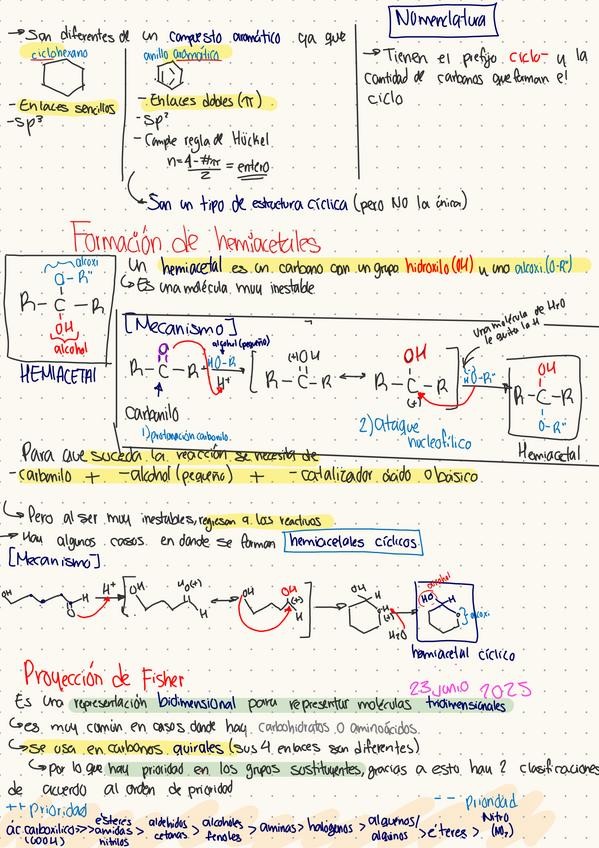 → Son diferentes de un compuesto aromático ya que
ciclohexano
anillo aromático
- Enlaces sencillos
- sp³
- Enlaces dobles (π)
- sp²
- Cumple regla de Hückel
n = 4 - #π / 2 = entero
Nomenclatura
→ Tienen el prefijo ciclo- y la
cantidad de carbonos que forman el
ciclo
Son un tipo de estructura cíclica (pero NO la única)
Formación de hemiacetales
alcoxi
O-R''
R-C-R
OH
alcohol
HEMIACETAL
Un hemiacetal es un carbono con un grupo hidroxilo (OH) y uno alcoxi (O-R'')
↳ Es una molécula muy inestable
[Mecanismo]
una molécula de H₂O
le quita la H
alcohol (pequeño)
O
R-C-R
HO-R
H⁺
(+)OH
R-C-R
OH
R-C-R
(+)
HO-R''
OH
R-C-R
O-R''
Carbonilo
1) protonación carbonilo
2) ataque
nucleofílico
Hemiacetal
Para que suceda la reacción se necesita de
- carbonilo + - alcohol (pequeño) + - catalizador ácido o básico
↳ Pero al ser muy inestables, regresan a los reactivos
→ Hay algunos casos en donde se forman hemiacetales cíclicos
[Mecanismo]
OH
H
O
H⁺
OH
HO(+)
H
OH
(+)
H
OH
H
O
H(+)
H₂O
alcohol
HO
H
O
alcoxi
hemiacetal cíclico
Proyección de Fisher
23 junio 2025
Es una representación bidimensional para representar moléculas tridimensionales
↳ es muy común en casos donde hay carbohidratos o aminoácidos.
↳ se usa en carbonos quirales (sus 4 enlaces son diferentes)
↳ por lo que hay prioridad en los grupos sustituyentes, gracias a esto hay 2 clasificaciones
de acuerdo al orden de prioridad
++ Prioridad
-- Prioridad
ác carboxílico (COOH) >> ésteres amidas nitrilos > aldehídos cetonas > alcoholes fenoles > aminas > halógenos > alquenos/ alquinos > éteres > Nitro (NO₂)